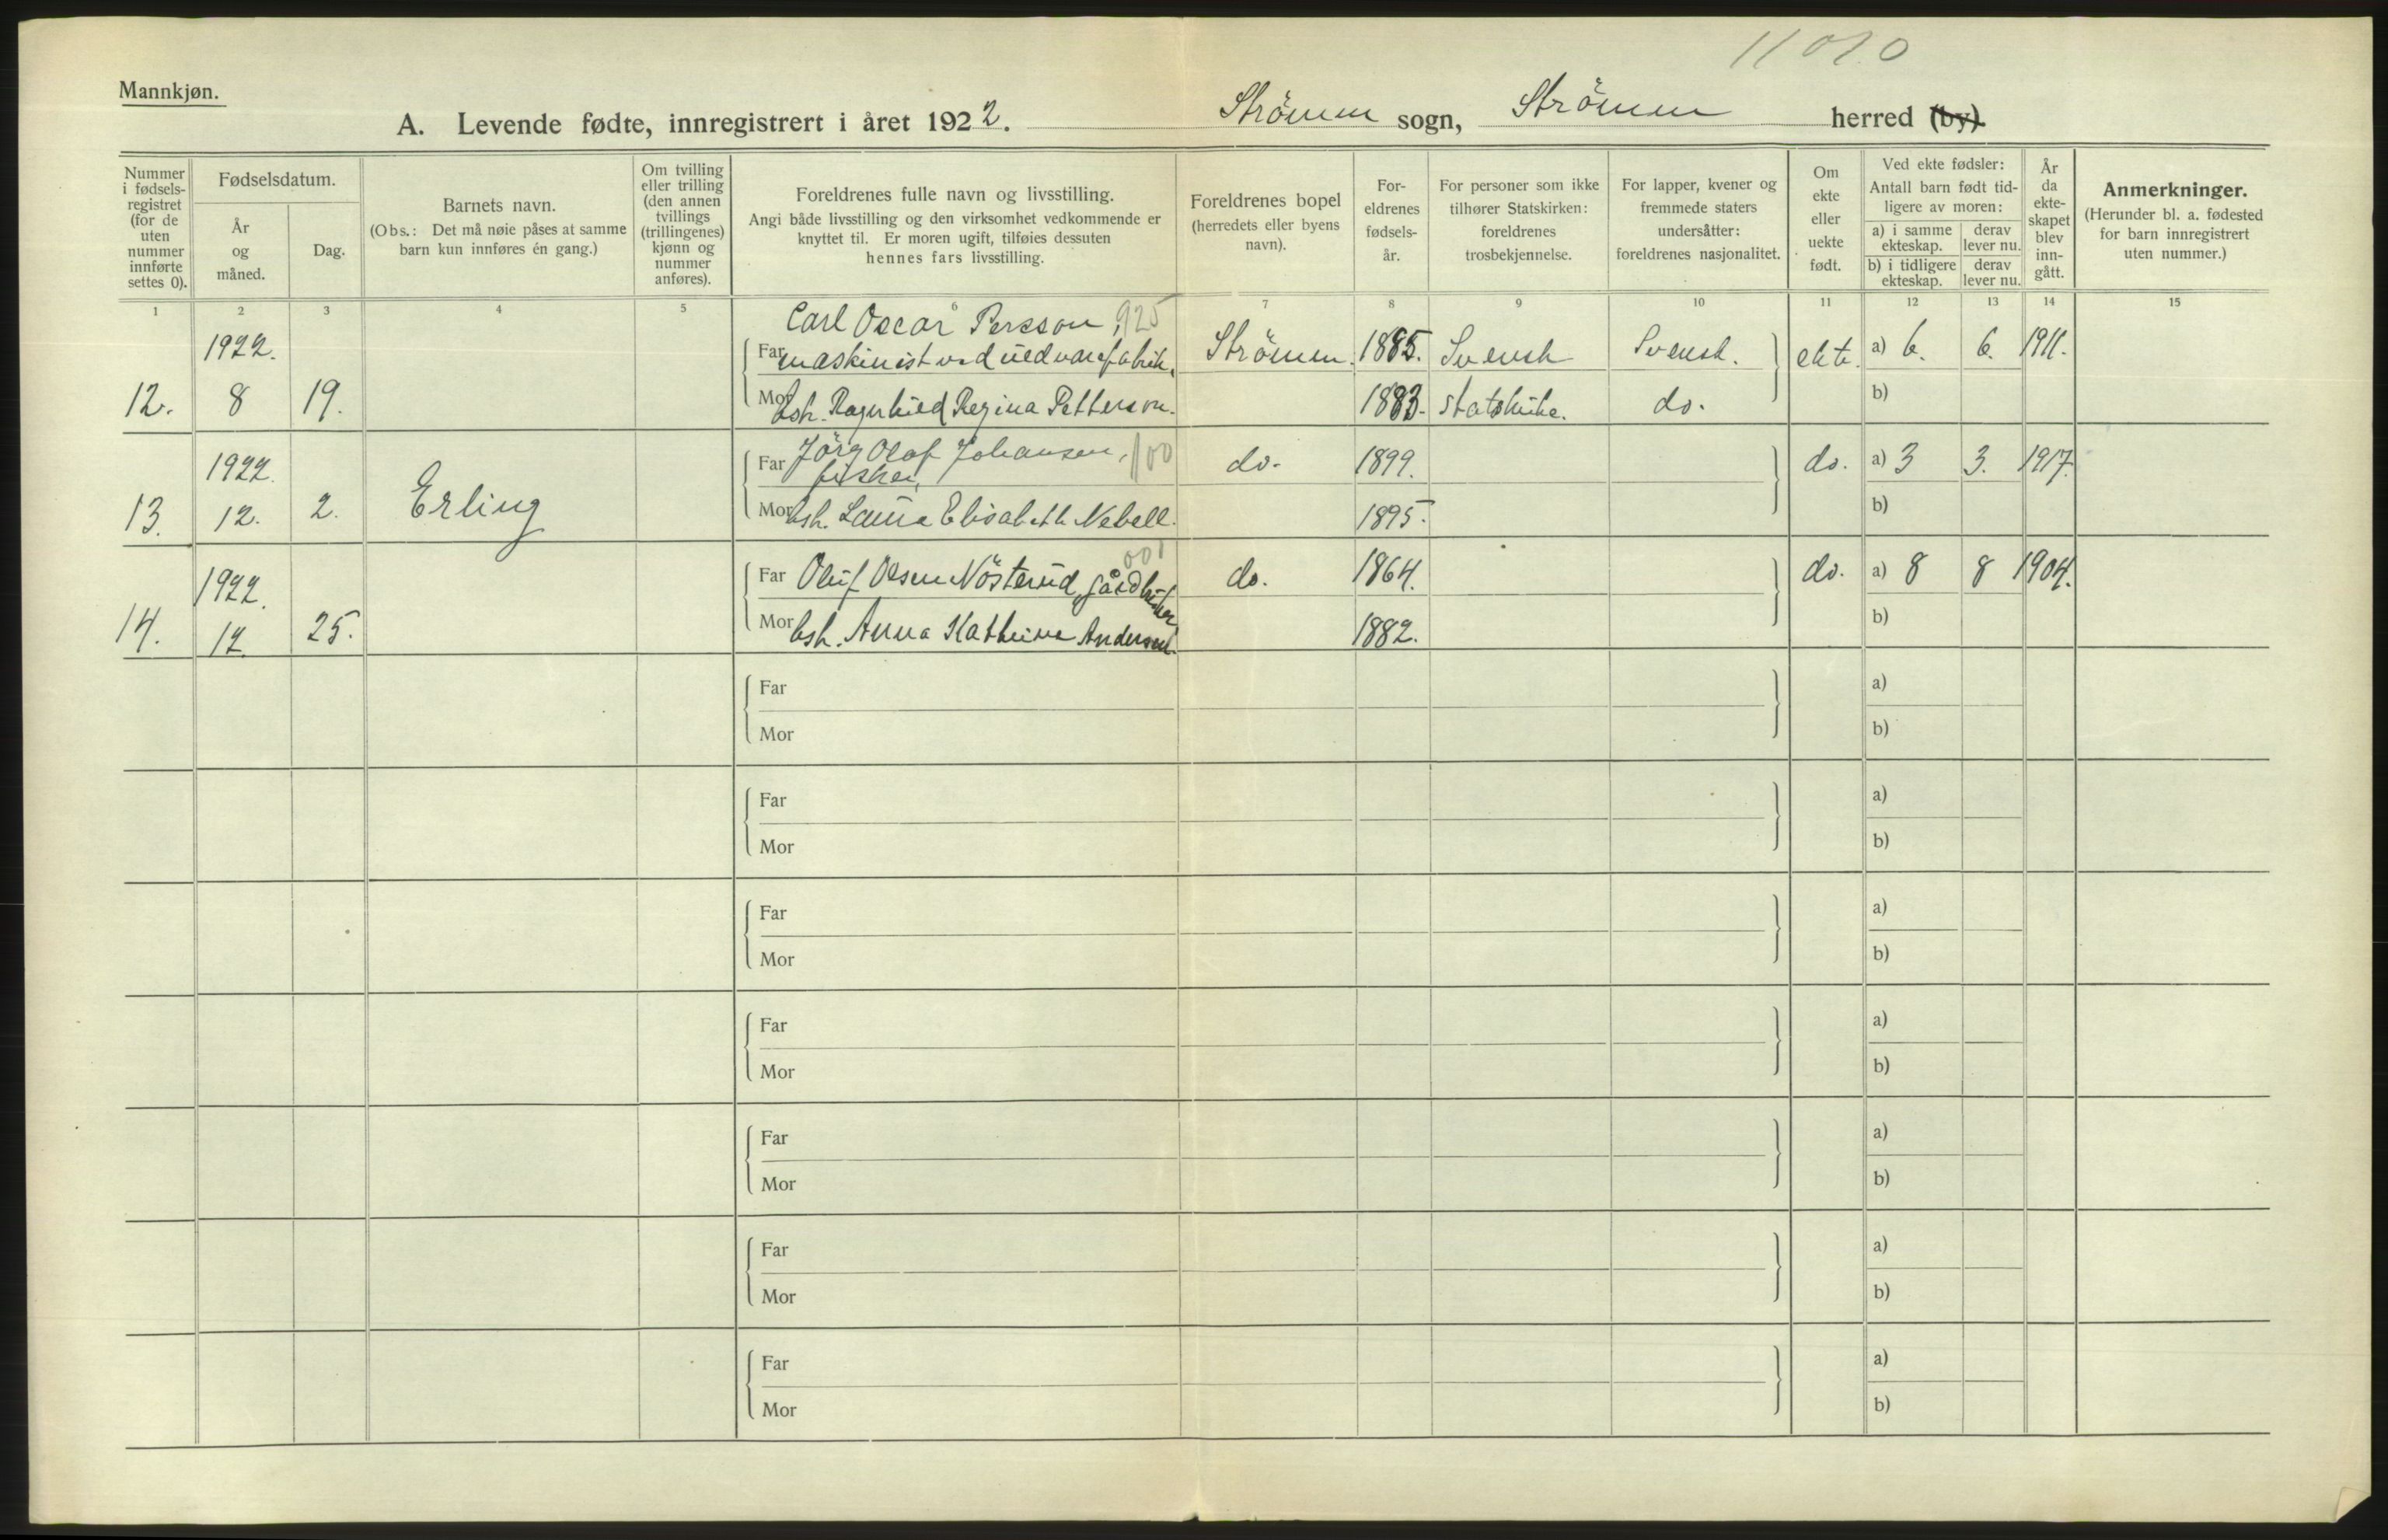 11010
Mannkjøn.
A. Levende fødte, innregistrert i året 1922. Strömm sogn, Strömm herred (by)
Nummer i fødsels-registret (for de uten nummer innførte settes 0).
Fødselsdatum.
År og måned.
Dag.
Barnets navn.
(Obs.: Det må nøie påses at samme barn kun innføres én gang.)
Om tvilling eller trilling (den annen tvillings (trillingenes) kjønn og nummer anføres).
Foreldrenes fulle navn og livsstilling.
Angi både livsstilling og den virksomhet vedkommende er knyttet til. Er moren ugift, tilføies dessuten hennes fars livsstilling.
Foreldrenes bopel
(herredets eller byens navn).
For-eldrenes fødsels-år.
For personer som ikke tilhører Statskirken: foreldrenes trosbekjennelse.
For lapper, kvener og fremmede staters undersåtter: foreldrenes nasjonalitet.
Om ekte eller uekte født.
Ved ekte fødsler:
Antall barn født tid-ligere av moren:
a) i samme ekteskap.
derav lever nu.
b) i tidligere ekteskap.
derav lever nu.
År da ekte-skapet blev inn-gått.
Anmerkninger.
(Herunder bl. a. fødested for barn innregistrert uten nummer.)
1 2 3 4 5 6 7 8 9 10 11 12 13 14 15
Carl Oscar Persson, 925
1922. Far maskinist ved Strömm. 1885. Svensk Svensk. ekte. a) 6. 6. 1911.
12. 8 19. Mor Ragnhild Regina Petterson. 1883. Statskirke. do. b)
1922. Far Jörg Olaf Johansen, 100 do. 1899. do. a) 3 3. 1917.
fisker,
13. 12. 2. Erling Mor Laura Elisabeth Nebell. 1895. b)
001
1922. Far Oluf Olsen Nösterud, gårdbruker do. 1864. do. a) 8 8 1904.
14. 12 25. Mor Anna Kathrine Andersen. 1882. b)
Far a)
Mor b)
Far a)
Mor b)
Far a)
Mor b)
Far a)
Mor b)
Far a)
Mor b)
Far a)
Mor b)
Far a)
Mor b)